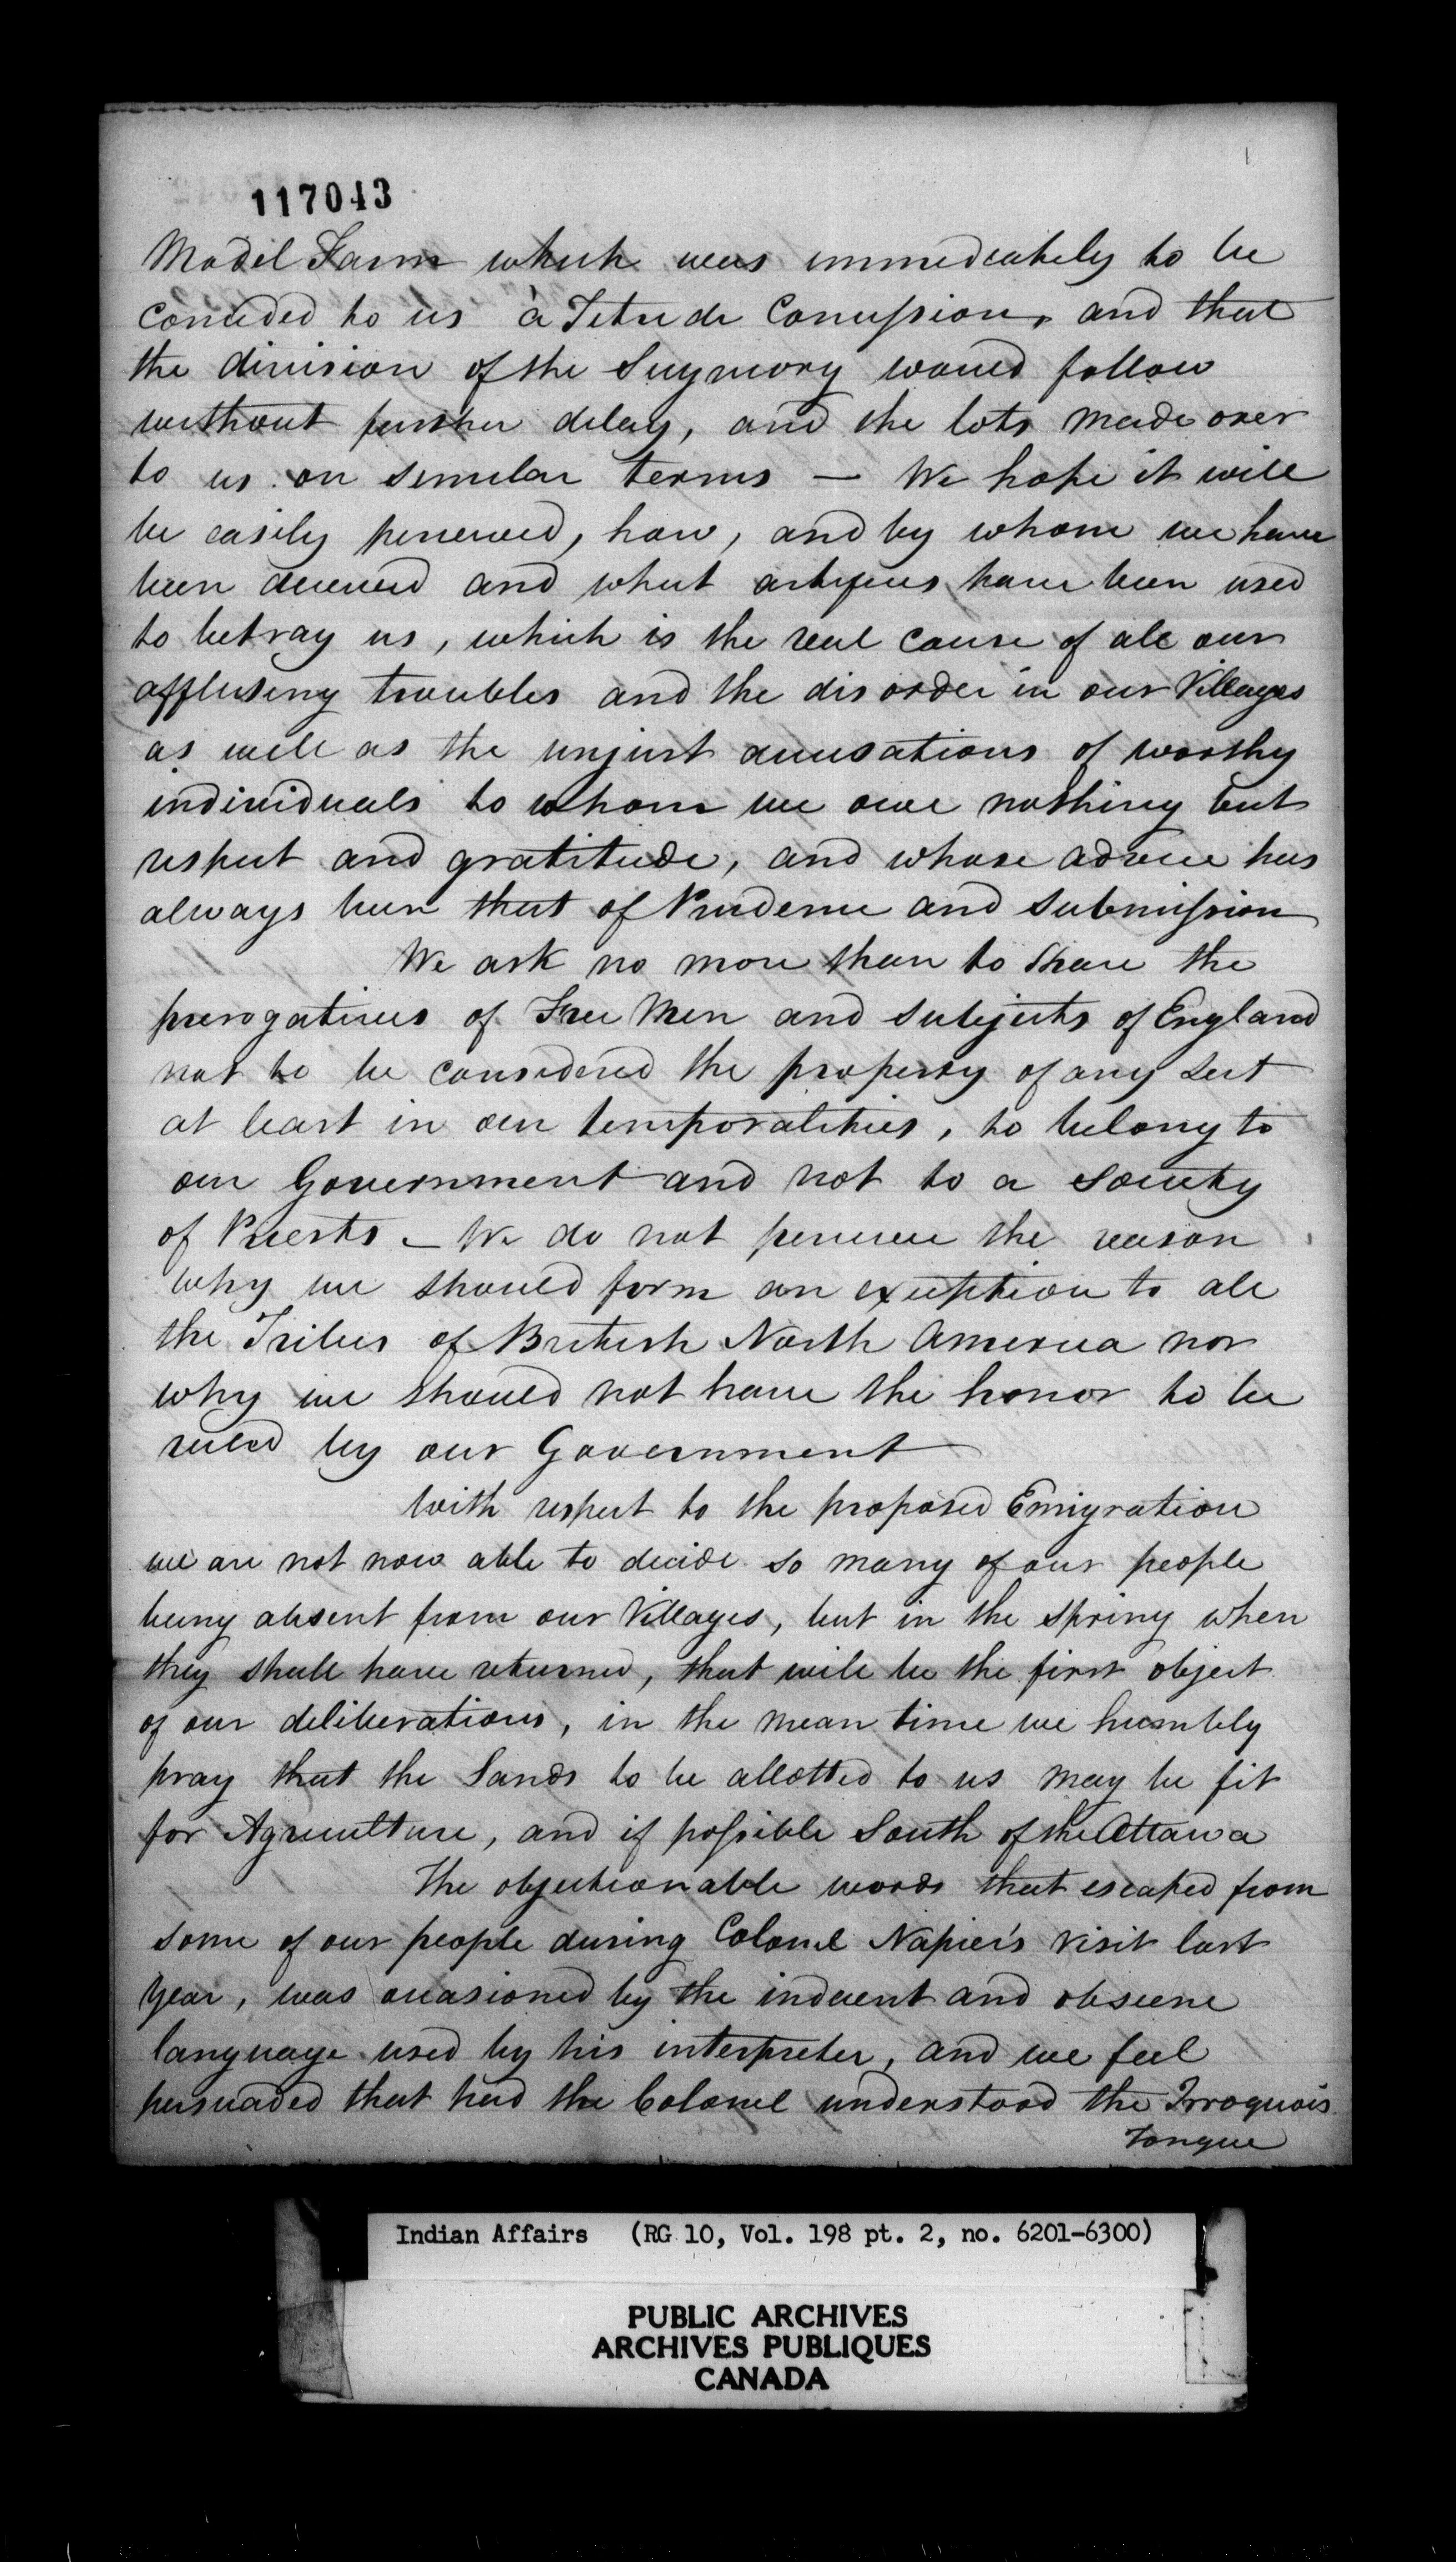 117043
Model Farm which was immediately to be
conceded to us à Titre de Concession, and that
the division of the Seignory would follow
without further delay, and the lots made over
to us on similar terms — We hope it will
be easily perceived, how, and by whom we have
been deceived and what artifices have been used
to betray us, which is the real cause of all our
afflicting troubles and the disorder in our Villages
as well as the unjust accusations of worthy
individuals to whom we owe nothing but
respect and gratitude, and whose advice has
always been that of Prudence and submission
We ask no more than to share the
prerogatives of Free Men and subjects of England
not to be considered the property of any Sect
at least in our temporalities, to belong to
our Government and not to a Society
of Priests — We do not perceive the reason
why we should form an exception to all
the Tribes of British North America nor
why we should not have the honor to be
ruled by our Government
With respect to the proposed Emigration
we are not now able to decide so many of our people
being absent from our Villages, but in the spring when
they shall have returned, that will be the first object
of our deliberations, in the mean time we humbly
pray that the Lands to be allotted to us may be fit
for Agriculture, and if possible South of the Ottawa
The objectionable words that escaped from
some of our people during Colonel Napier's visit last
Year, was occasioned by the indecent and obscene
language used by his interpreter, and we feel
persuaded that had the Colonel understood the Irroquois
Tongue
Indian Affairs (RG 10, Vol. 198 pt. 2, no. 6201-6300)
PUBLIC ARCHIVES
ARCHIVES PUBLIQUES
CANADA